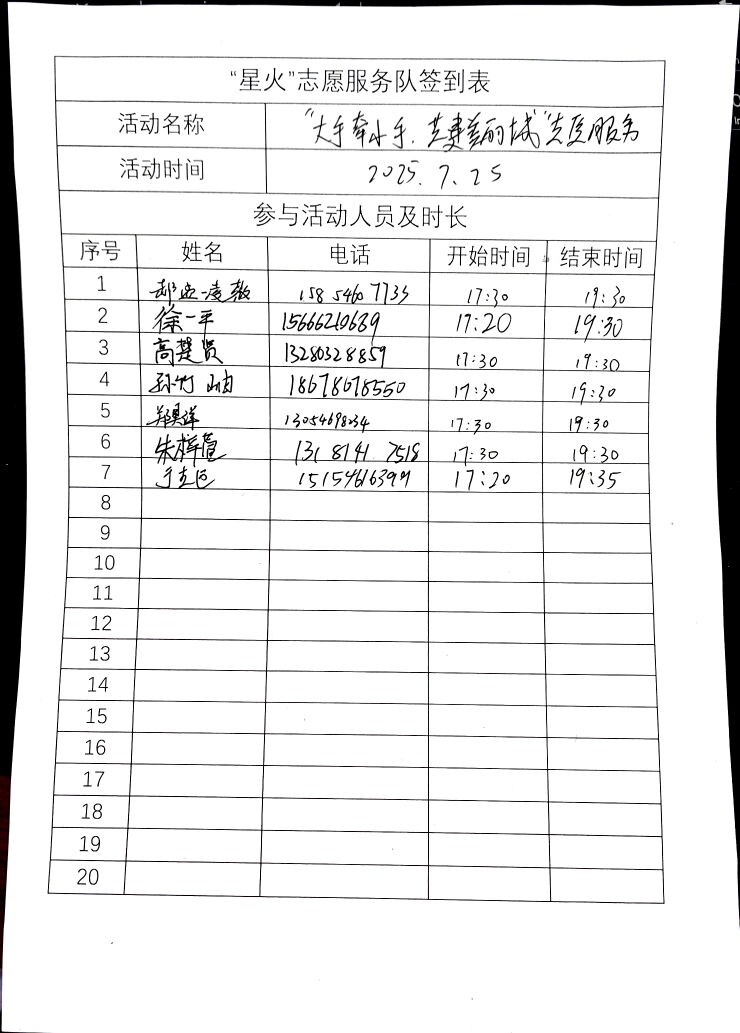 “星火”志愿服务队签到表
活动名称 “大手牵小手,共建美丽城”志愿服务
活动时间 2025.7.25
参与活动人员及时长
序号 姓名 电话 开始时间 结束时间
1 158 5460 7733 17:30 19:30
2 徐一平 15666210689 17:20 19:30
3 高楚贤 13280328859 17:30 19:30
4 孙竹岫 18678678550 17:30 19:30
5 13054698034 17:30 19:30
6 朱梓萱 131 8141 7518 17:30 19:30
7 17:20 19:35
8
9
10
11
12
13
14
15
16
17
18
19
20